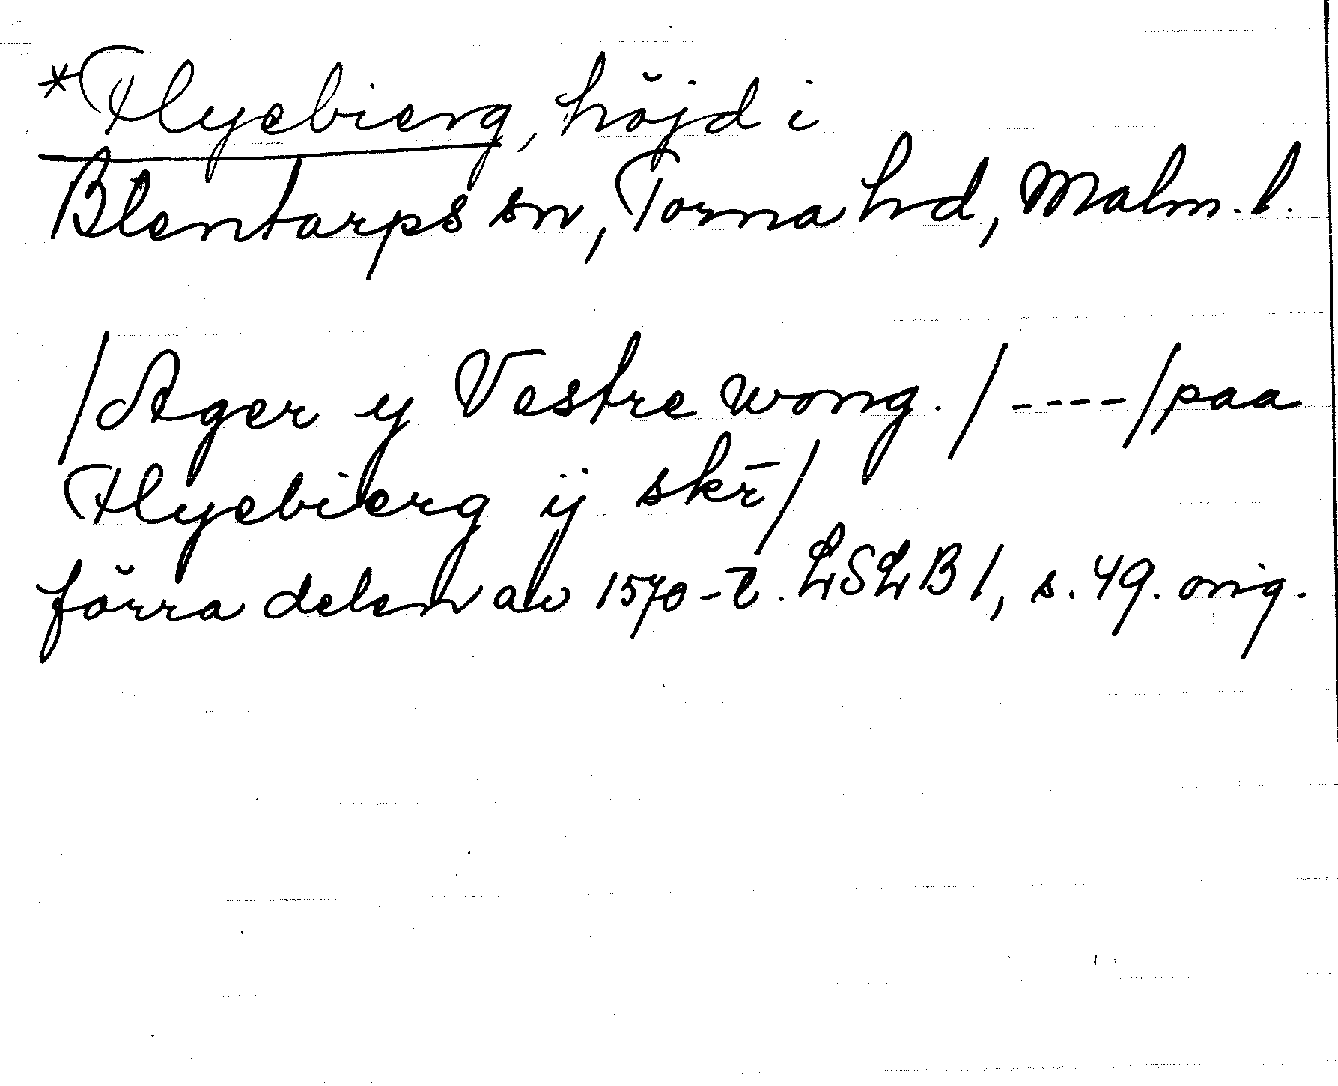 *Flyebierg, höjd i
Blentarps sn, Torna hd, Malm. l.
/Ager y Vestre wong./----/paa
Flyebierg ij skr̄/
förra delen av 1570-t. LSLB 1, s. 49. orig.